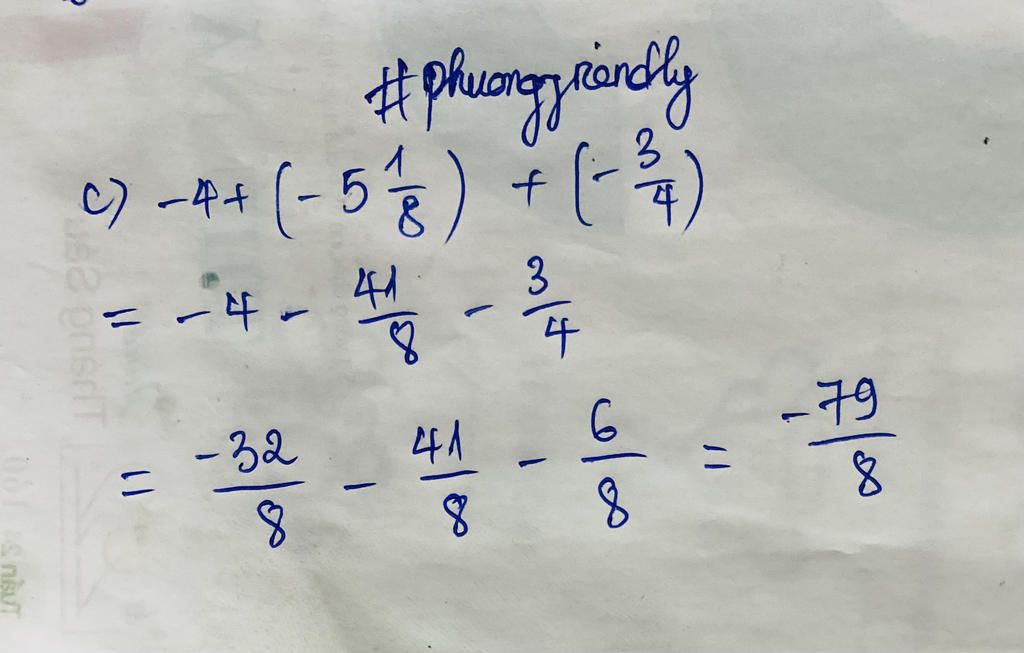 #phuonggriandly
c) -4 + (-5 1/8) + (-3/4)
= -4 - 41/8 - 3/4
= -32/8 - 41/8 - 6/8 = -79/8